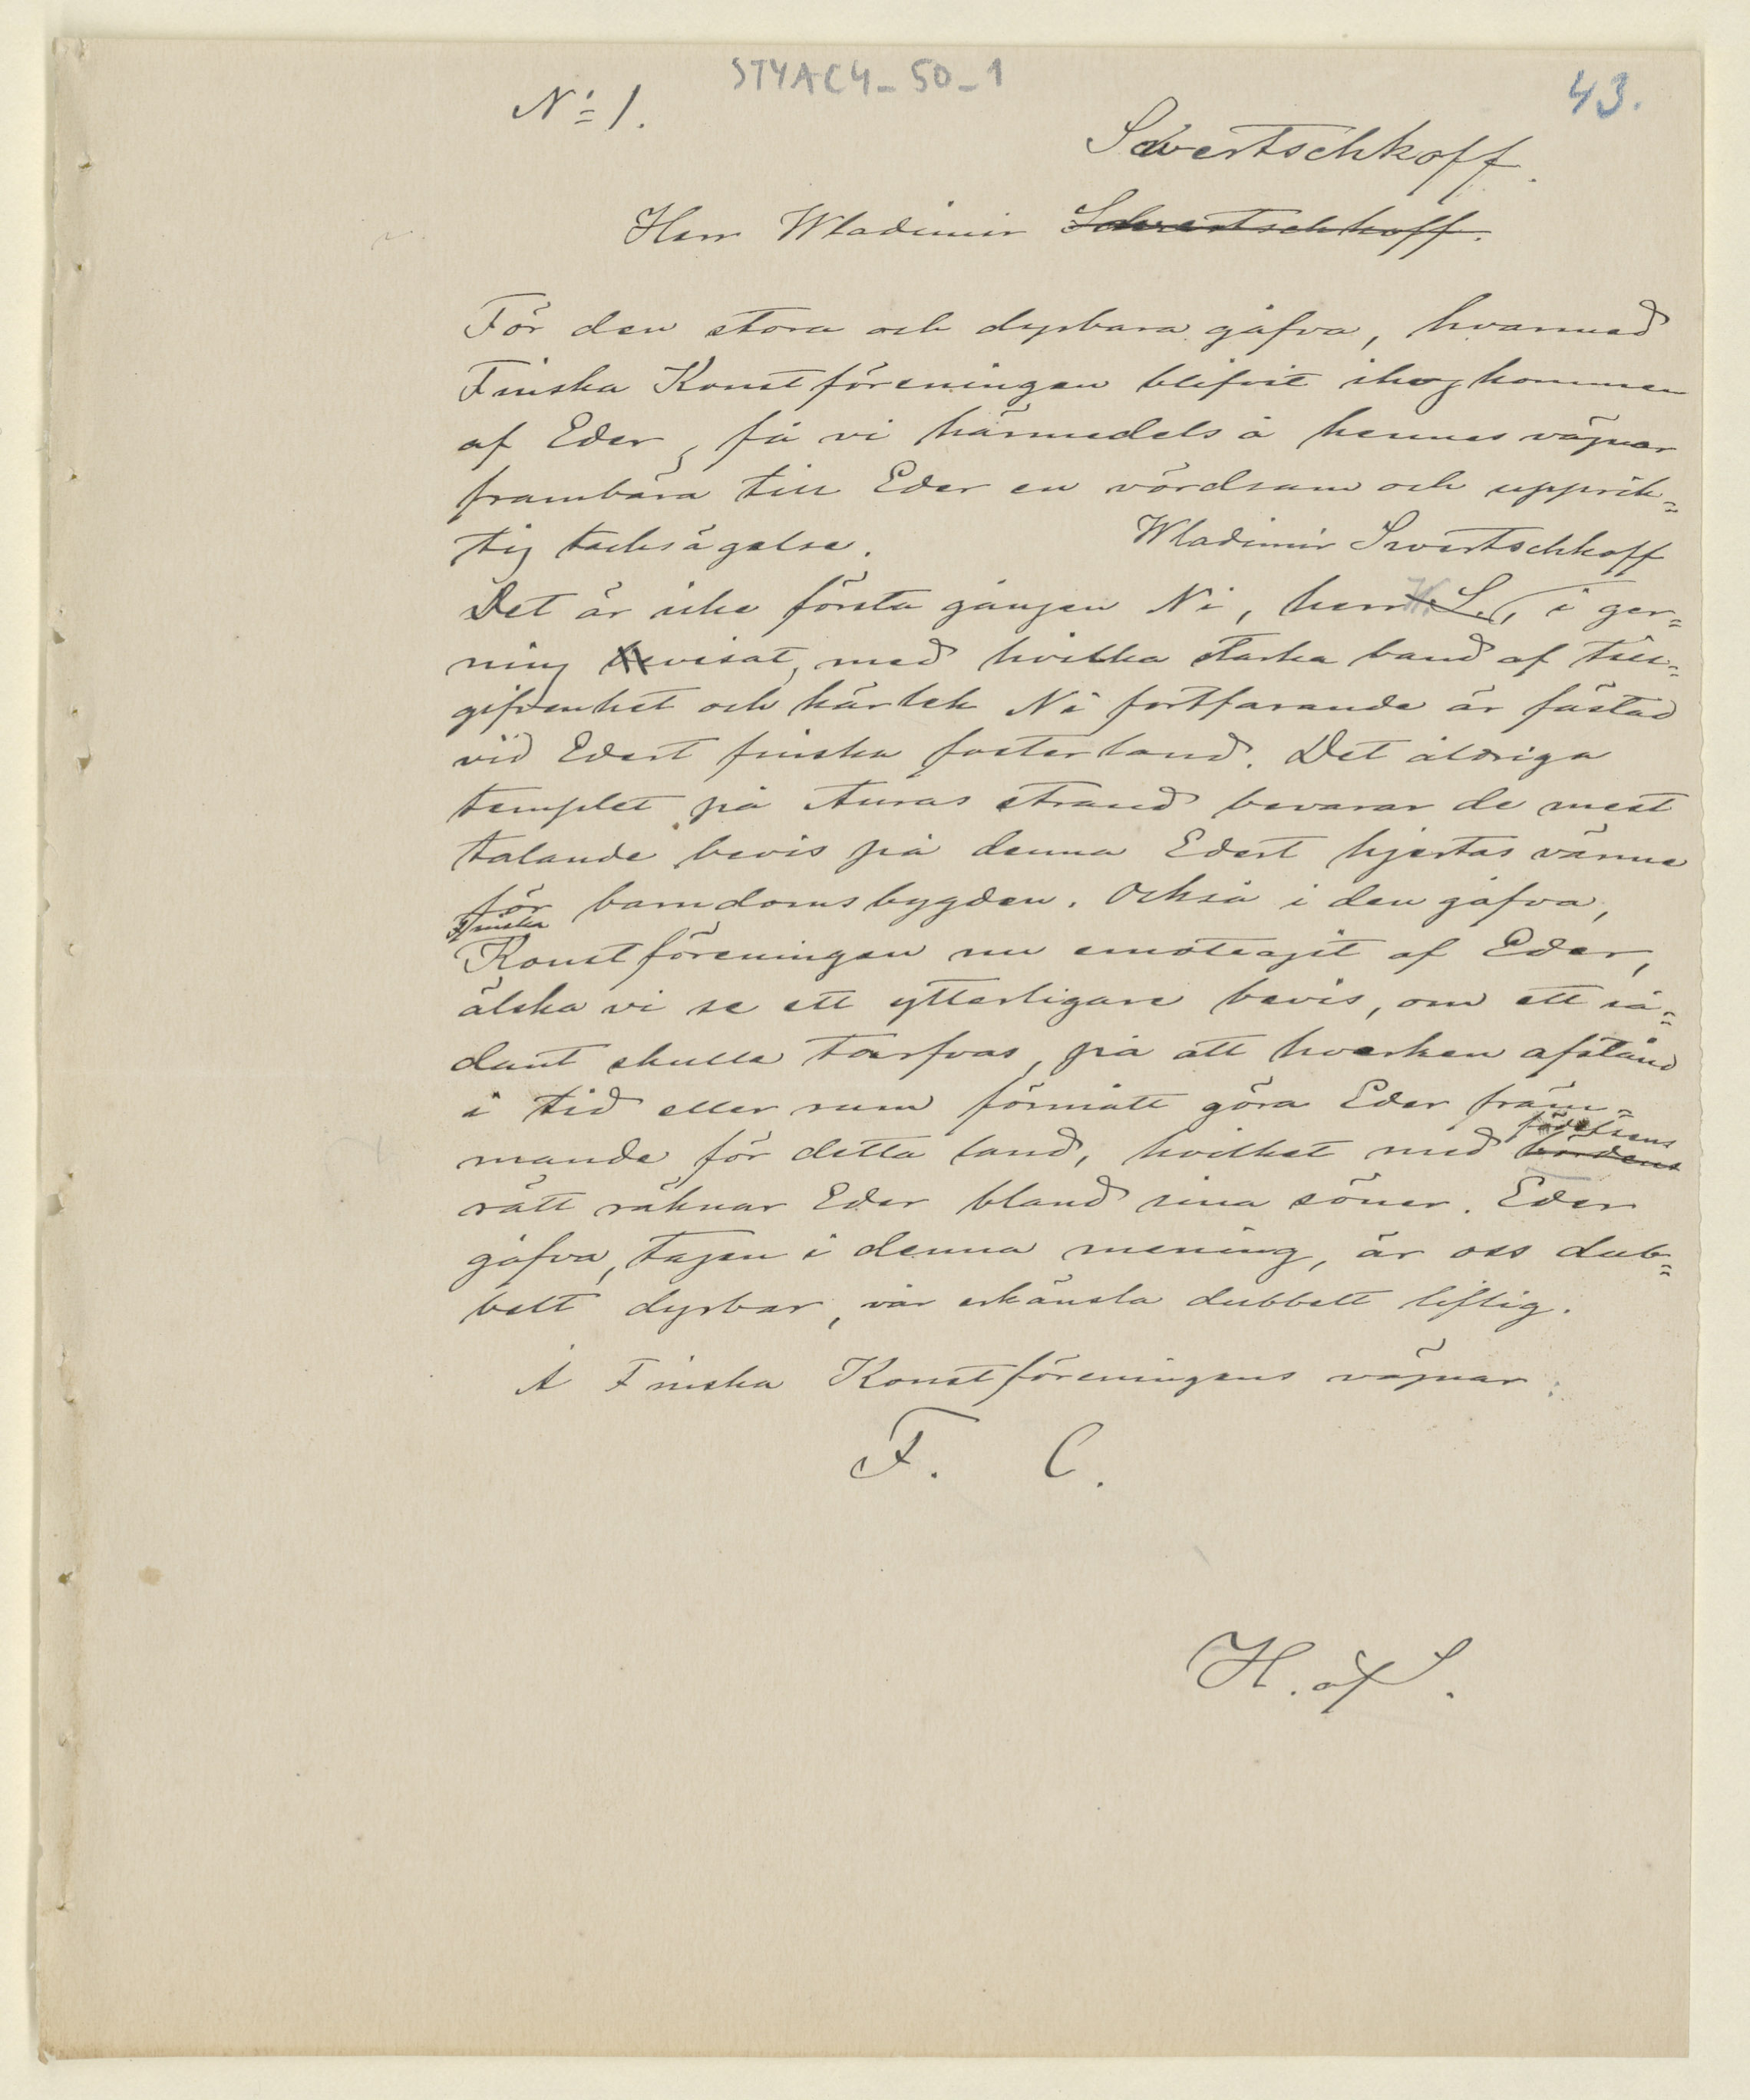 STYAC4_50_1
43.
N:o 1.
Swertschkoff.
Herr Wladimir Schwertschkoff.
För den stora och dyrbara gåfva, hvarmed
Finska Konstföreningen blifvit ihogkommen
af Eder, få vi härmedels å hennes vägnar
frambära till Eder en vördsam och upprik=
tig tacksägelse.
Wladimir Swertschkoff
Det är icke första gången Ni, herr S., i ger=
ning bevisat, med hvilka starka band af till=
gifvenhet och kärlek Ni fortfarande är fästad
vid Edert finska fosterland. Det åldriga
templet på Auras strand bevarar de mest
talande bevis på denna Edert hjertas värme
för barndomsbygden. Också i den gåfva,
Finska
Konstföreningen nu emotagit af Eder,
älska vi se ett ytterligare bevis, om ett så=
dant skulle tarfvas, på att hvarken afstånd
i tid eller rum förmått göra Eder främ=
födelsens
mande för detta land, hvilket med bördens
rätt räknar Eder bland sina söner. Eder
gåfva, tagen i denna mening, är oss dub=
belt dyrbar, vår erkänsla dubbelt liflig.
Å Finska Konstföreningens vägnar:
F. C.
H. af S.